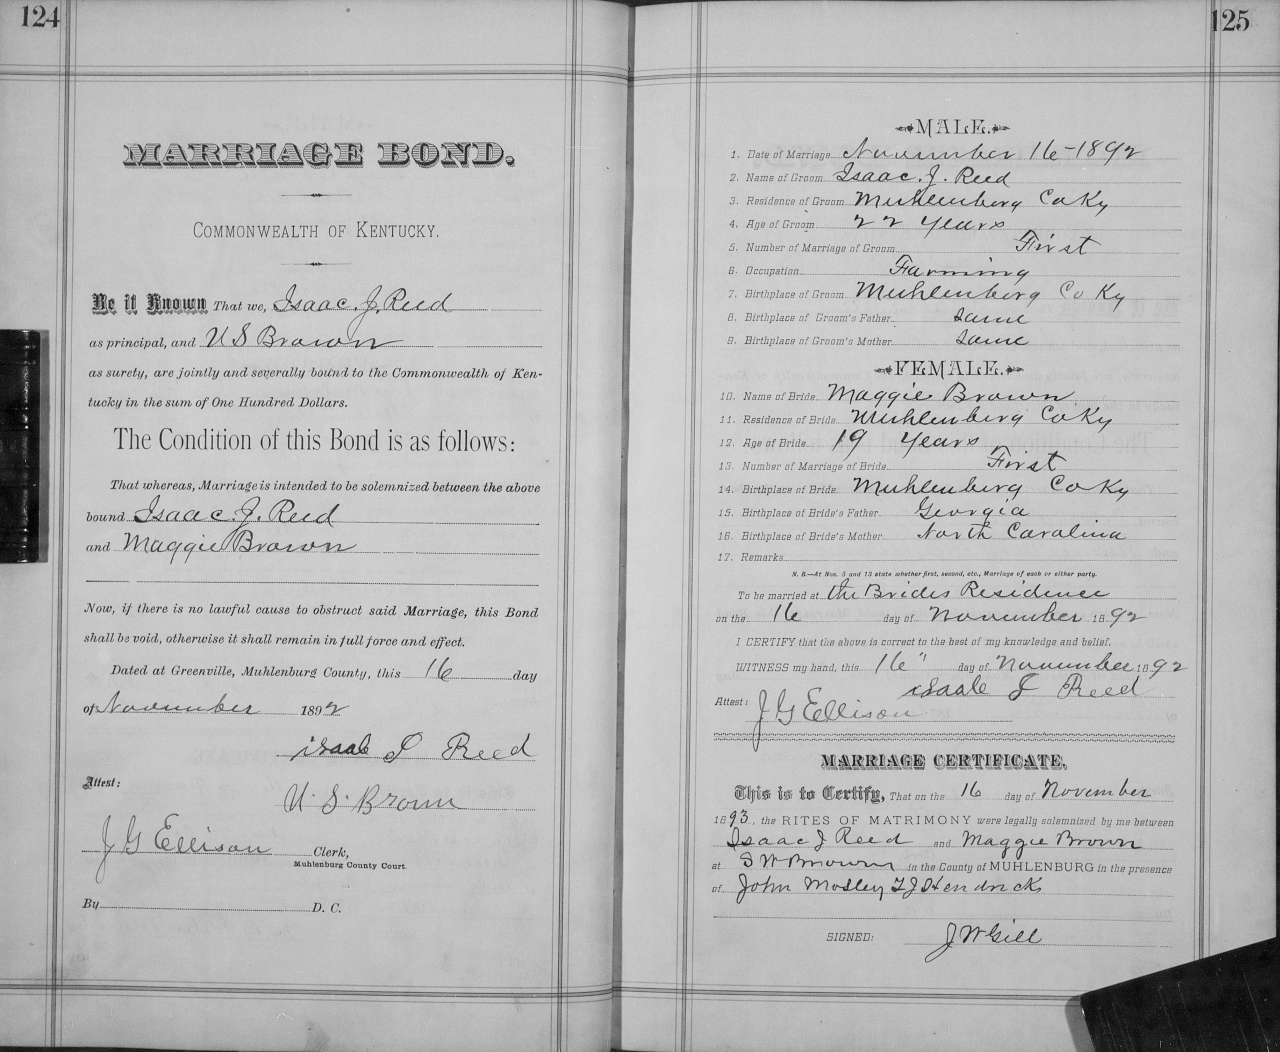 124
MARRIAGE BOND.
COMMONWEALTH OF KENTUCKY.
Be it Known That we, Isaac. J. Reed
as principal, and U S Brown
as surety, are jointly and severally bound to the Commonwealth of Ken-
tucky in the sum of One Hundred Dollars.
The Condition of this Bond is as follows:
That whereas, Marriage is intended to be solemnized between the above
bound Isaac. J. Reed
and Maggie Brown
Now, if there is no lawful cause to obstruct said Marriage, this Bond
shall be void, otherwise it shall remain in full force and effect.
Dated at Greenville, Muhlenburg County, this 16 day
of November 1892
isaac J Reed
Attest:
U. S. Brown
J G Ellison Clerk,
Muhlenburg County Court.
By D. C.
125
MALE.
1. Date of Marriage November 16-1892
2. Name of Groom Isaac. J. Reed
3. Residence of Groom Muhlenberg Co Ky
4. Age of Groom 22 years
5. Number of Marriage of Groom First
6. Occupation Farming
7. Birthplace of Groom Muhlenberg Co Ky
8. Birthplace of Groom's Father same
9. Birthplace of Groom's Mother same
FEMALE.
10. Name of Bride Maggie Brown
11. Residence of Bride Muhlenberg Co Ky
12. Age of Bride 19 years
13. Number of Marriage of Bride First
14. Birthplace of Bride Muhlenberg Co Ky
15. Birthplace of Bride's Father Georgia
16. Birthplace of Bride's Mother North Carolina
17. Remarks
N. B.—At Nos. 5 and 13 state whether first, second, etc., Marriage of each or either party.
To be married at the Brides Residence
on the 16 day of November 1892
I CERTIFY that the above is correct to the best of my knowledge and belief.
WITNESS my hand, this 16" day of November 1892
isaac J Reed
Attest: J G Ellison
MARRIAGE CERTIFICATE.
This is to Certify, That on the 16 day of November
1893, the RITES OF MATRIMONY were legally solemnized by me between
Isaac J Reed and Maggie Brown
at S W Brown in the County of MUHLENBURG in the presence
of John Mosley T J Hendrick
SIGNED: J W Gill